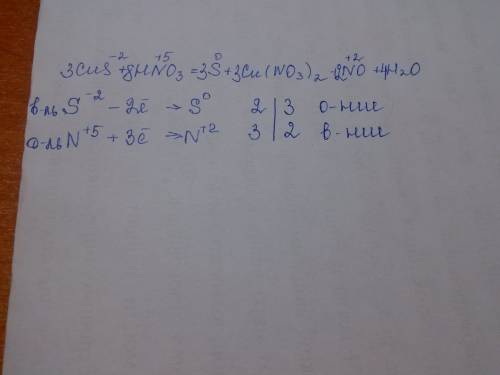 3CuS⁻² + 8HN⁺⁵O₃ = 3S⁰ + 3Cu(NO₃)₂ 2N⁺²O + 4H₂O
в-ль S⁻² - 2ē → S⁰ 2 | 3 о-ние
о-ль N⁺⁵ + 3ē → N⁺² 3 | 2 в-ние